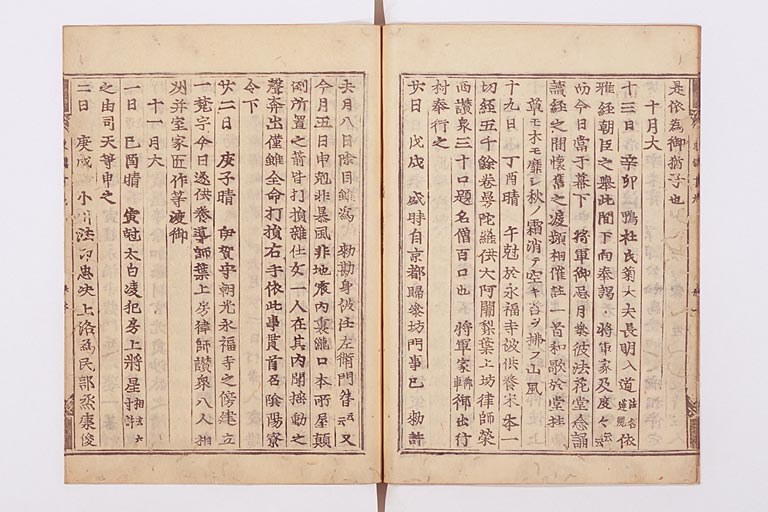 是依為御猶子也
十月大
十三日 辛卯 鴨社氏菊大夫長明入道 法名蓮胤 依
雅経朝臣之挙此間下向奉謁 将軍家及度々云云
而今日當于幕下 将軍御忌月参彼法花堂念誦
讀経之間懐舊之渡頻相催註一首和歌於堂柱
草モ木モ靡シ秋ノ霜消テ空キ苔ヲ拂フ山風
十九日 丁酉晴 午尅於永福寺被供養宋本一
切経五千餘巻曼陀羅供大阿闍梨葉上坊律師榮
西讃衆三十口題名僧百口也 将軍家御出行
村奉行之
廿日 戊戌 盛時自京都歸参坊門事已 勅許
去月八日除目雖為 勅勘身彼任左衛門督云云 又
今月五日申尅非暴風非地震内裏瀧口本所屋顛
倒所置之箭皆打損雜仕女一人在其内聞揺動之
聲奔出僅雖全命打損右手依此事貫首召陰陽寮
令下
廿二日 庚子晴 伊賀守朝光永福寺之傍建立
一梵宇今日遂供養導師葉上房律師讃衆八人相
州并室家匠作等渡御
十一月大
一日 己酉晴 寅尅太白凌犯房上將星 相去六寸許
之由司天等申之
二日 庚戌 小川法印忠快上洛為民部烝康俊